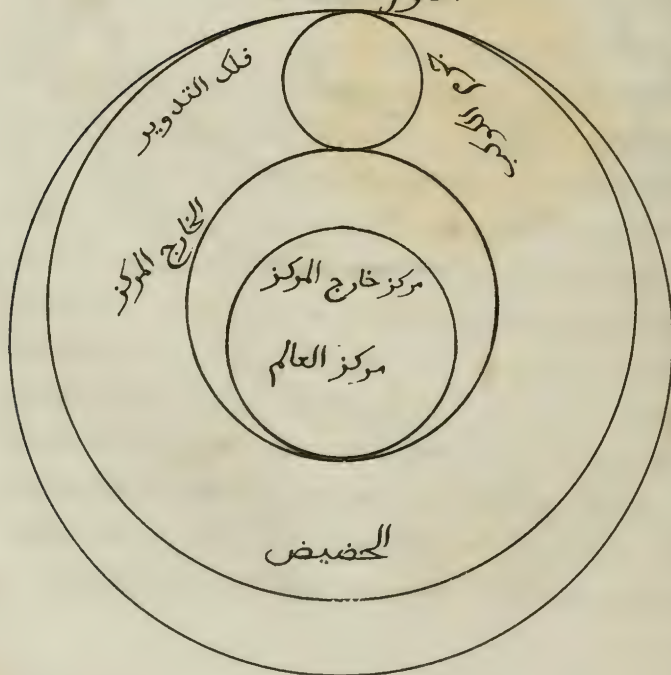 فلك التدوير
جرم الكوكب
الخارج المركز
مركز خارج المركز
مركز العالم
الحضيض